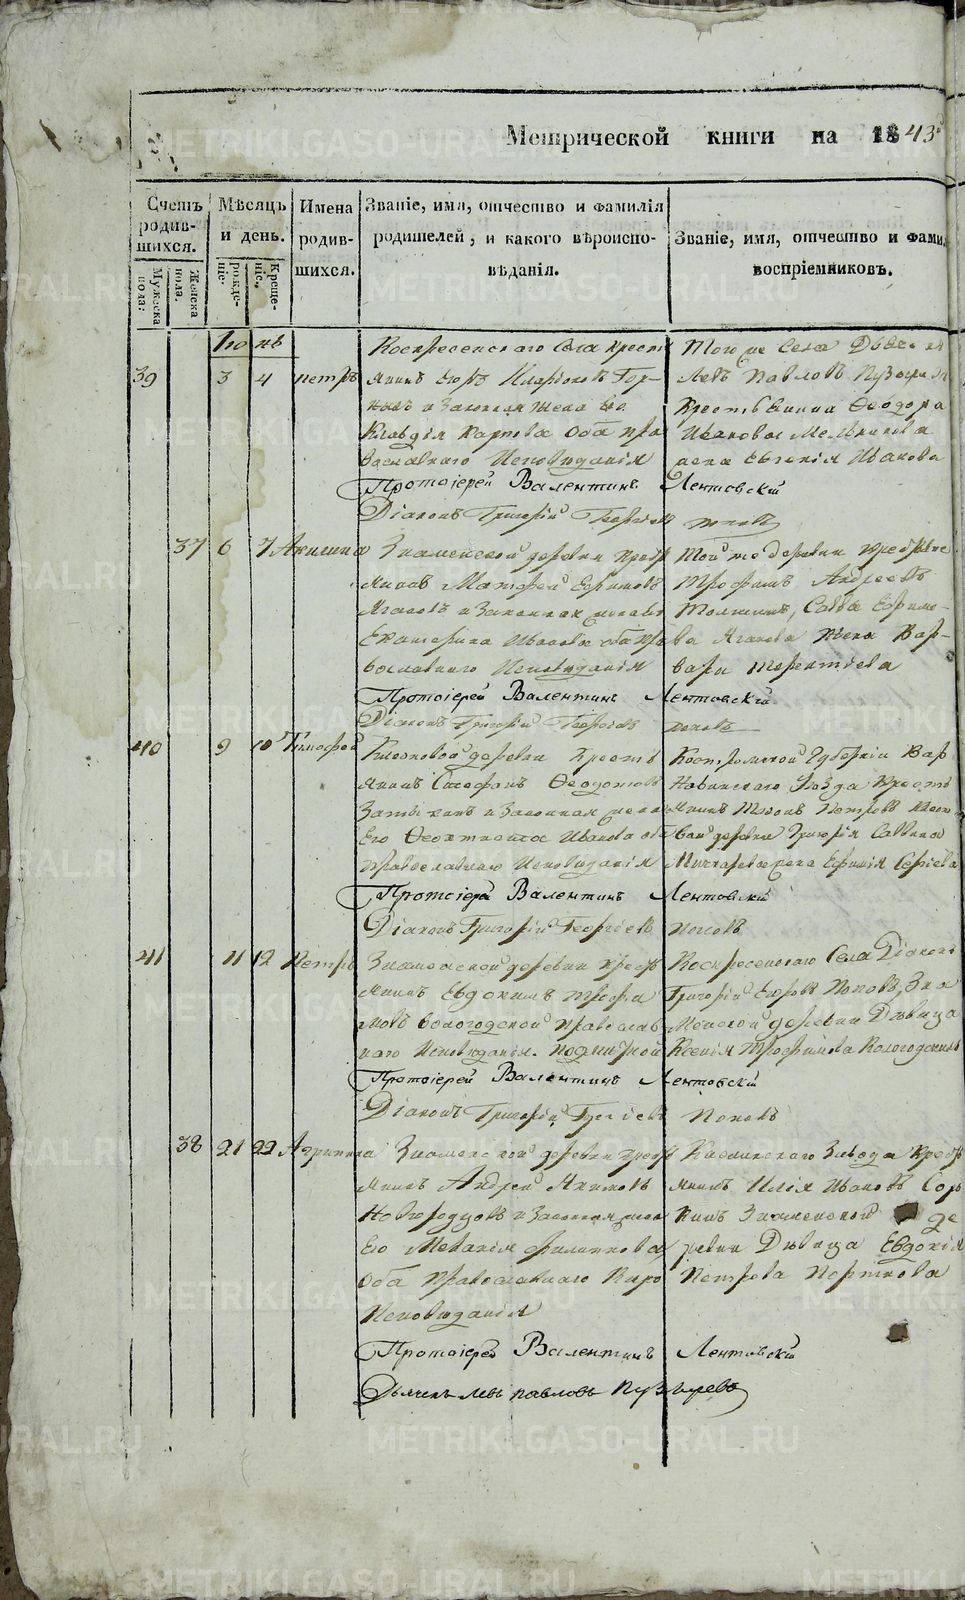 Метрической книги на 1843й
Счетъ родив-
шихся.
Мужеска пола:
Женска пола.
Мѣсяцъ
и день.
рожде-
ніе.
Креще-
ніе.
Имена
родив-
шихся.
Званіе, имя, отчество и фамилія
родителей, и какого вѣроиспо-
вѣданія.
Званіе, имя, отчество и фами
воспріемниковъ.
Іюнь
39 3 4 петръ
Воскресенскаго Села крест
янинъ Егоръ
и Законная жена Его
Клавдія Карпова Оба пра
вославнаго Исповѣданія
Того же Села Дьяче
Левъ Павловъ Пузыре
Крестьянина Феодора
Иванова Мельникова
жена Евгенія Иванова
Протоіерей Валентинъ Лентовскій
Діаконъ Григорій Георгіевъ поповъ
37 6 7 Акилина
Знаменской деревни крест
янинъ Матфей Ефимовъ
Агаповъ и Законная жена
Екатерина Иванова оба пра
вославнаго Исповѣданія
Той же деревни крестьяне
Трофимъ Андреевъ
Савва Ефимо-
ва Агапова жена Вар-
вара терентіева
Протоіерей Валентинъ Лентовскій
Діаконъ Григорій Георгіевъ поповъ
40 9 10 Тимофей
деревни Крестъ
янинъ Стефанъ Феодотовъ
и Законная жена
Его Феоктиста Иванова
православнаго Исповѣданія
Костромской Губерніи Вар
навинскаго Уѣзда Крестъ
янинъ Петровъ
деревни Григорія Саввина
жена
Протоіерей Валентинъ Лентовскій
Діаконъ Григорій Георгіевъ поповъ
41 11 12 Петръ
Знаменской деревни крест
янинъ Евдокимъ трофи
мовъ Вологодской Православ
наго Исповѣданія.
Воскресенскаго Села Діаконъ
Григорій Егоровъ Поповъ, Зна
менской деревни Дѣвица
Ксенія Трофимова Вологодскихъ
Протоіерей Валентинъ Лентовскій
Діаконъ Григорій Георгіевъ Поповъ
38 21 22 Агрипина
Знаменской деревни крест
янинъ Андрей Акимовъ
Новгородцовъ и Законная жена
Его Меланія филиппова
Оба Православнаго
Исповѣданія
Каслинскаго Завода Крест
янинъ Илія Ивановъ Сор
кинъ Знаменской де
ревни Дѣвица Евдокія
Петрова Портнова
Протоіерей Валентинъ Лентовскій
Дьячекъ левъ павловъ Пузыревъ
METRIKI.GASO-URAL.RU